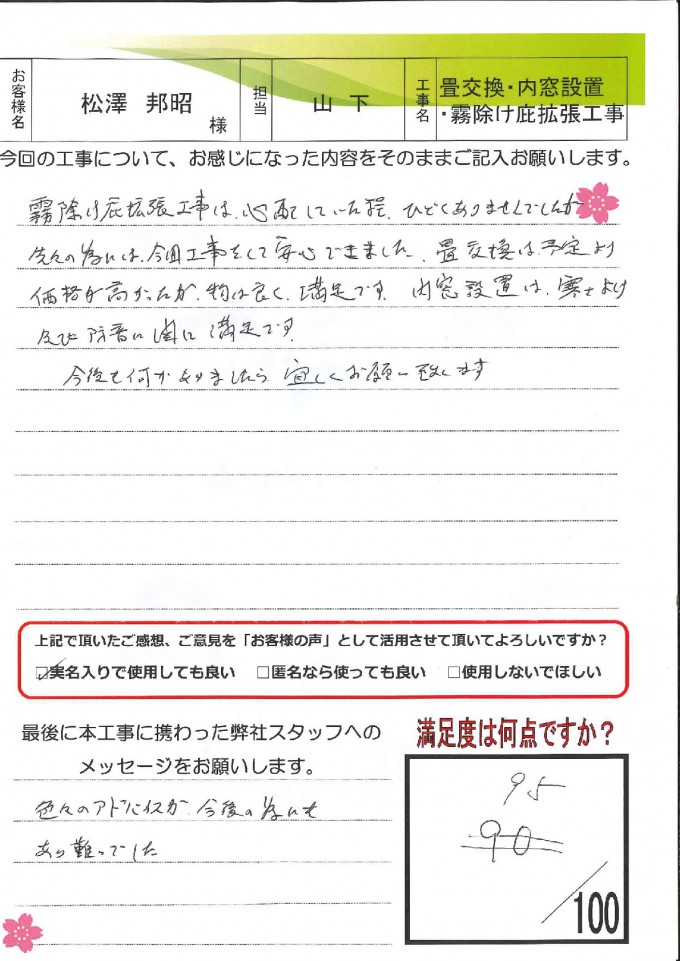 お客様名
松澤 邦昭
様
担当
山 下
工事名
畳交換・内窓設置
・霧除け庇拡張工事
今回の工事について、お感じになった内容をそのままご記入お願いします。
霧除け庇拡張工事は、心配していた程、ひどくありませんでしたが
先々の為には、今回工事をして安心できました。畳交換は予定より
価格が高かったが、物は良く、満足です。内窓設置は、寒さよけ
及び防音に 満足です
今後も何かありましたら 宜しくお願い致します
上記で頂いたご感想、ご意見を「お客様の声」として活用させて頂いてよろしいですか？
☑実名入りで使用しても良い □匿名なら使っても良い □使用しないでほしい
最後に本工事に携わった弊社スタッフへの
メッセージをお願いします。
色々のアドバイスが、今後の為にも
あり難ったでした
満足度は何点ですか？
95
90
/100